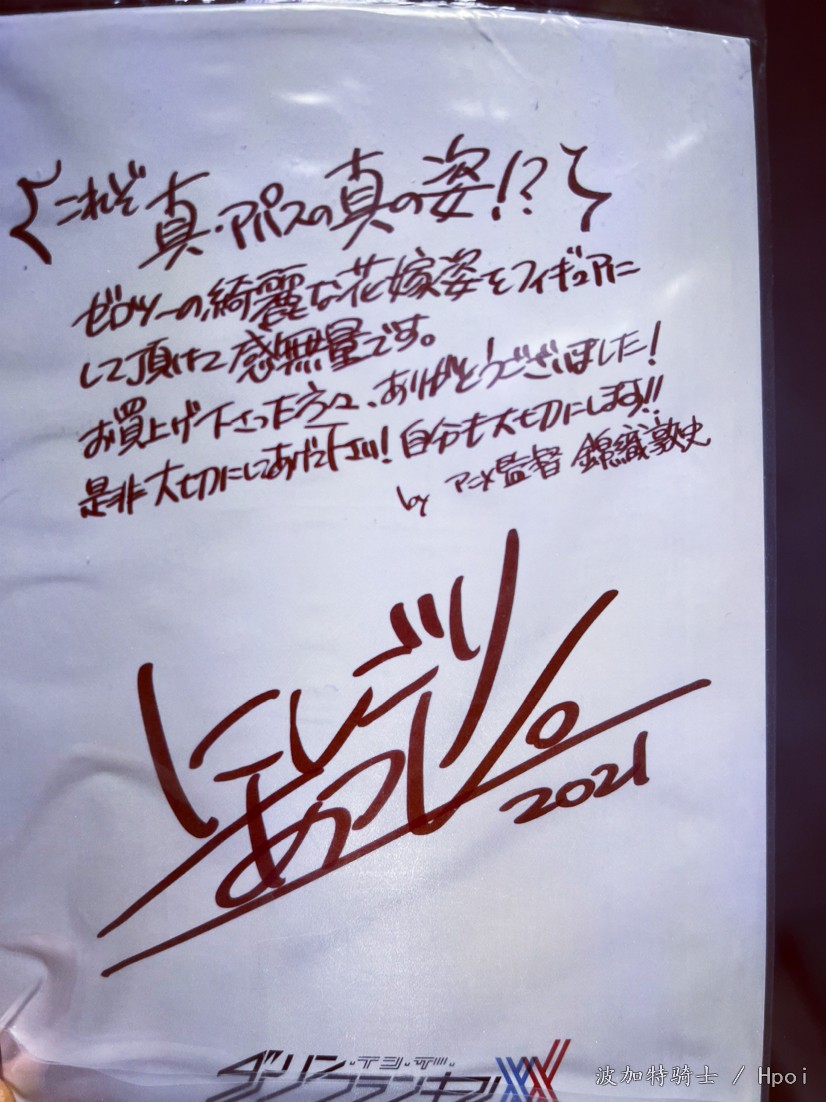 これぞ真・アパスの真の姿!?
ゼロツーの綺麗な花嫁姿をフィギュアに
して頂けて感無量です。
お買上げ下さった方々、ありがとうございました!
是非大切にしてあげて下さい!自分も大切にします!!
by アニメ監督 錦織敦史
にしごり
あつし。
2021
ダーリン・イン・ザ・
フランキス
波加特骑士 / Hpoi